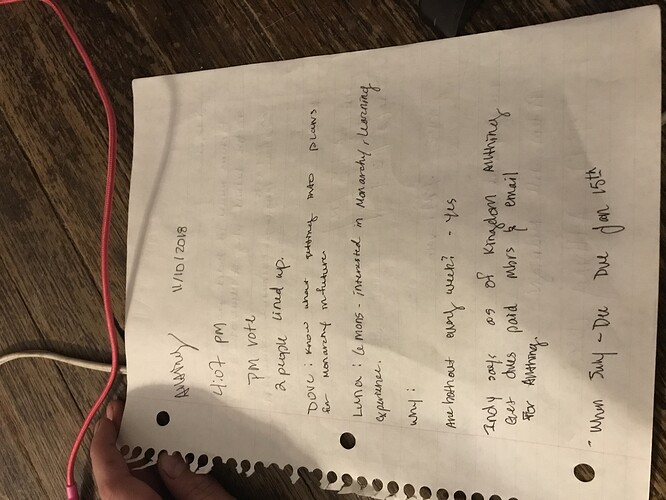 Althing 11/10/2018
4:07 pm
PM vote
2 people lined up.
Dove: Know what getting into plans
for Monarchy in future
Luna: Lemons - interested in Monarchy, learning
experience.
Why:
Are both out every week? - Yes
Indy says as of Kingdom Althing
Get dues paid mbrs & email
for Althing.
- When Suly - Due Due Jan 15th